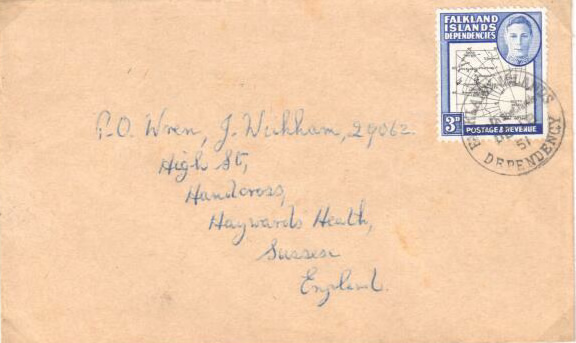 FALKLAND
ISLANDS
DEPENDENCIES
3D
POSTAGE & REVENUE
51
DEPENDENCY
P.O. Wren, J. Wickham, 29062.
High St,
Handcross,
Haywards Heath,
Sussex
England.